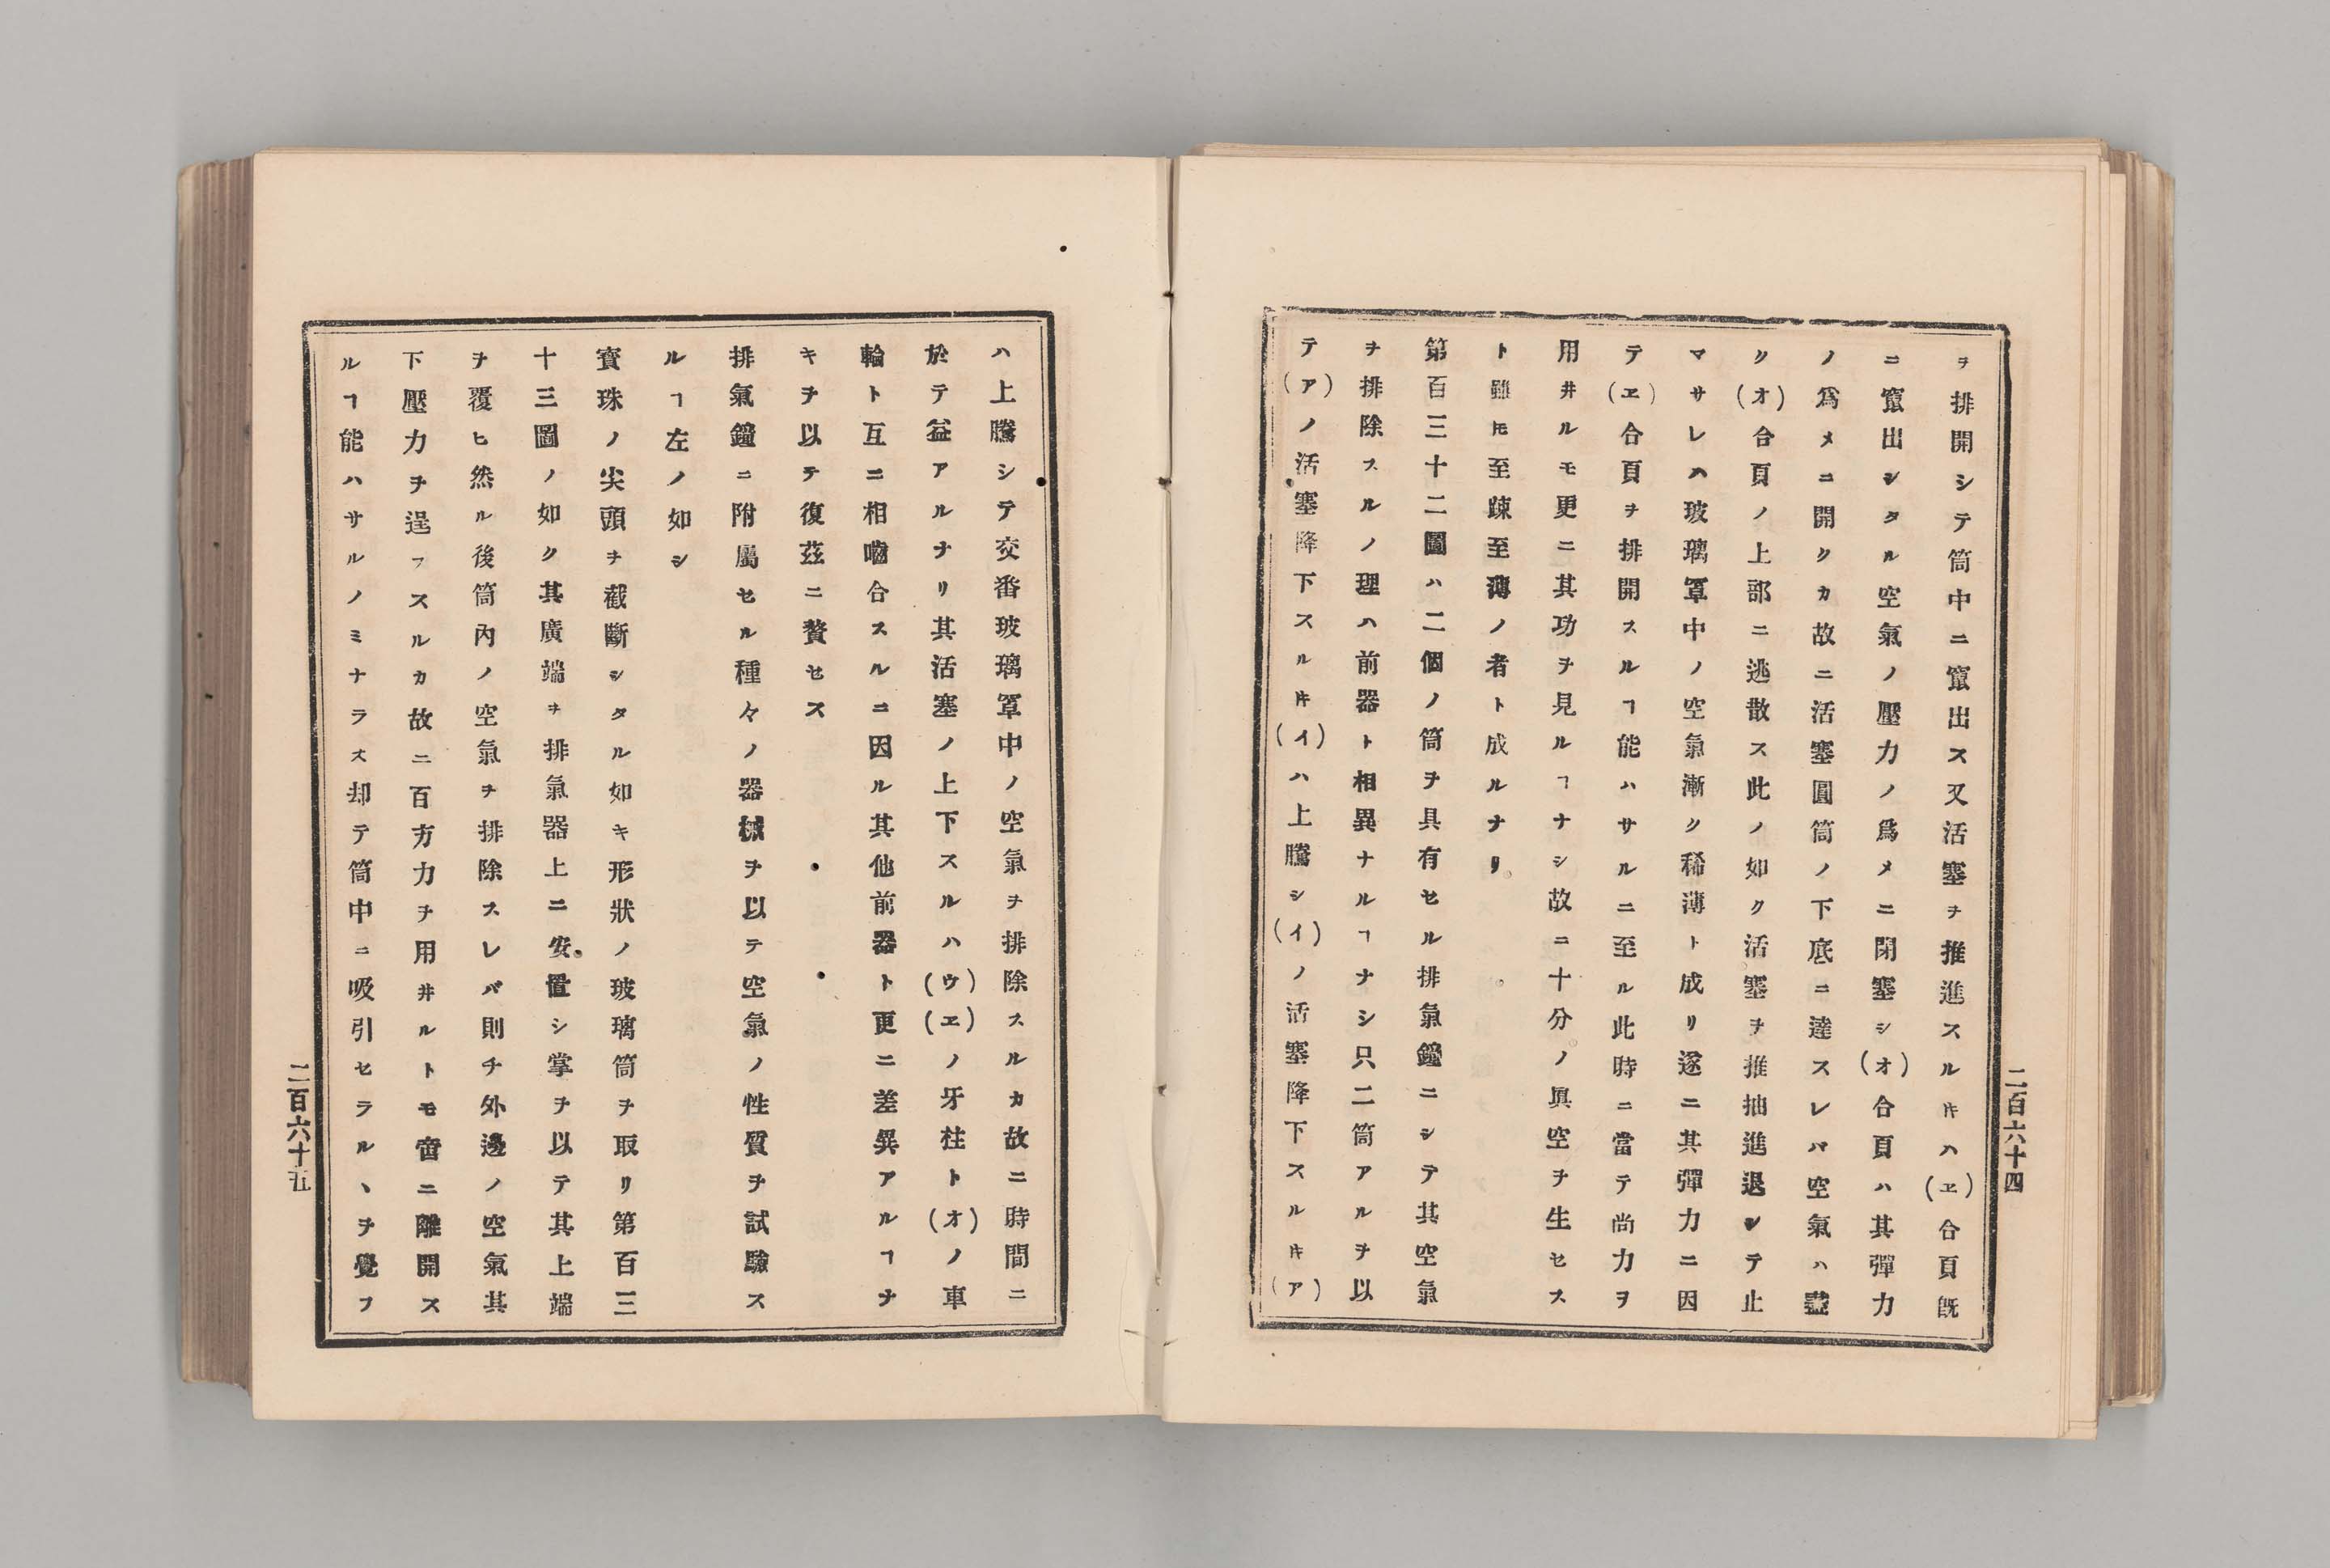 ヲ排開シテ筒中ニ竄出ス又活塞ヲ推進スルヰハ(ヱ)合頁既
ニ竄出シタル空氣ノ壓力ノ爲メニ閉塞シ(オ)合頁ハ其彈力
ノ爲メニ開クカ故ニ活塞圓筒ノ下底ニ達スレバ空氣ハ盡
ク(オ)合頁ノ上部ニ逃散ス此ノ如ク活塞ヲ推抽進退シテ止
マサレハ玻璃罩中ノ空氣漸ク稀薄ト成リ遂ニ其彈力ニ因
テ(ヱ)合頁ヲ排開スルヿ能ハサルニ至ル此時ニ當テ尚力ヲ
用井ルモ更ニ其功ヲ見ルヿナシ故ニ十分ノ眞空ヲ生セス
ト雖𪜈至疎至薄ノ者ト成ルナリ。
第百三十二圖ハ二個ノ筒ヲ具有セル排氣鐘ニシテ其空氣
ヲ排除スルノ理ハ前器ト相異ナルヿナシ只二筒アルヲ以
テ(ア)ノ活塞降下スルヰ(イ)ハ上騰シ(イ)ノ活塞降下スルヰ(ア)
二百六十四
ハ上騰シテ交番玻璃罩中ノ空氣ヲ排除スルカ故ニ時間ニ
於テ益アルナリ其活塞ノ上下スルハ(ウ)(ヱ)ノ牙柱ト(オ)ノ車
輪ト互ニ相嚙合スルニ因ル其他前器ト更ニ差異アルヿナ
キヲ以テ復茲ニ贅セス
排氣鐘ニ附屬セル種々ノ器械ヲ以テ空氣ノ性質ヲ試驗ス
ルヿ左ノ如シ
寶珠ノ尖頭ヲ截斷シタル如キ形狀ノ玻璃筒ヲ取リ第百三
十三圖ノ如ク其廣端ヲ排氣器上ニ安置シ掌ヲ以テ其上端
ヲ覆ヒ然ル後筒內ノ空氣ヲ排除スレバ則チ外邊ノ空氣其
下壓力ヲ逞フスルカ故ニ百方力ヲ用井ルトモ啻ニ離開ス
ルヿ能ハサルノミナラス却テ筒中ニ吸引セラルヽヲ覺フ
二百六十五